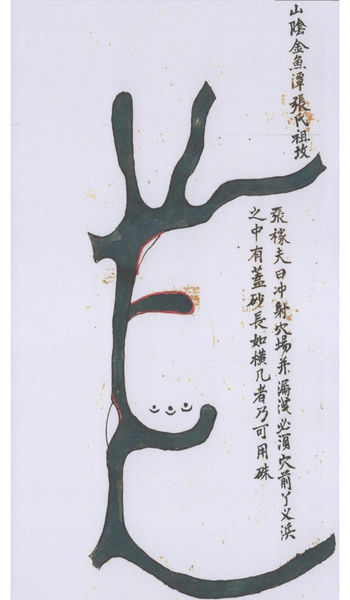 山陰金魚潭張氏祖坟
張稼夫曰冲射穴場并漏淺必湏穴前丫义浜
之中有蓋砂長如橫几者乃可用硃